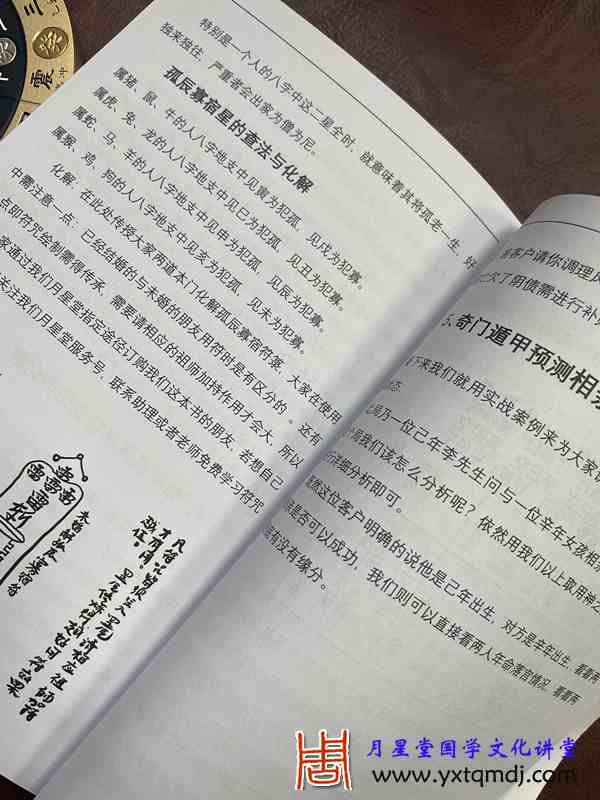 三
震
特别是一个人的八字中这二星全时，就意味着其将孤老一生，好
独来独往，严重者会出家为僧为尼。
孤辰寡宿星的查法与化解
属猪、鼠、牛的人八字地支中见寅为犯孤，见戌为犯寡。
属虎、兔、龙的人八字地支中见巳为犯孤，见丑为犯寡。
属蛇、马、羊的人八字地支中见申为犯孤，见辰为犯寡。
属猴、鸡、狗的人八字地支中见亥为犯孤，见未为犯寡。
化解：在此处传授大家两道本门化解孤辰寡宿符箓，大家在使用
中需注意一点：已经结婚的与未婚的朋友用符时是有区分的。还有
点即符咒绘制需得传承，需要请相应的祖师加持作用才会大，所以
家通过我们月星堂指定途径订购我们这本书的朋友，若想自己
关注我们月星堂服务号，联系助理或者老师免费学习符咒
客户请你调理风
欠了阴债需进行补
5.奇门遁甲预测相亲
下来我们就用实战案例来为大家
局乃一位己年李先生问与一位辛年女孩相亲
局我们该怎么分析呢？依然用我们以上取用神么
详细分析即可。
然这位客户明确的说他是己年出生，对方是辛年出生，看看两
是否可以成功，我们则可以直接看两人年命落宫情况，看看两
有没有缘分。
月星堂国学文化讲堂
www.yxtqmdj.com